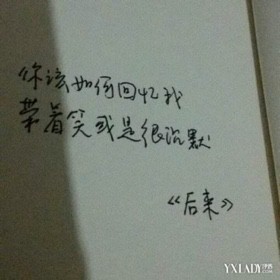 你该如何回忆我
带着笑或是很沉默
《后来》
YXLADY.COM